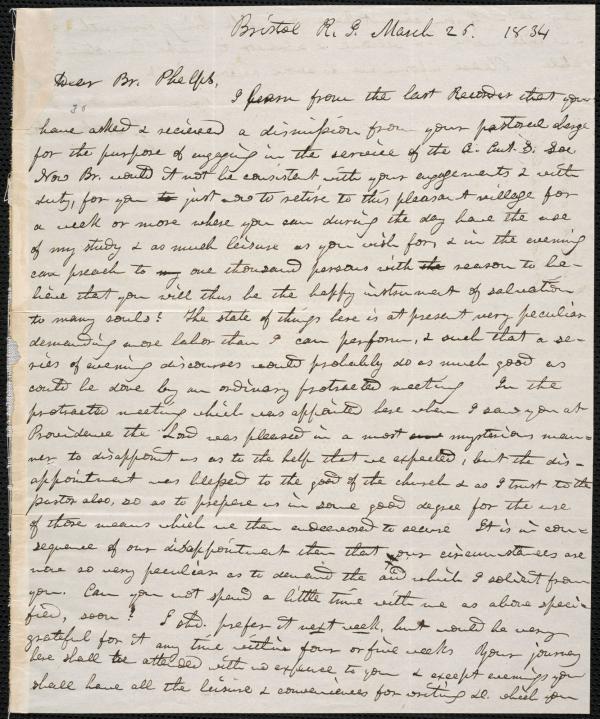 Bristol R. I. March 25. 1834
Dear Br. Phelps,
I learn from the last Recorder that you
have asked & recieved a dismission from your pastoral charge
for the purpose of engaging in the service of the A. Ant. S. Soc.
Now Br. would it not be consistent with your engagements & with
duty, for you to just now to retire to this pleasant village for
a week or more where you can during the day have the use
of my study & as much leisure as you wish for, & in the evening
can preach to my one thousand persons with the reason to be-
lieve that you will thus be the happy instrument of salvation
to many souls? The state of things here is at present very peculiar
demanding more labor than I can perform, & such that a se-
ries of evening discourses would probably do as much good as
could be done by an ordinary protracted meeting In the
protracted meeting which was appointed here when I saw you at
Providence the Lord was pleased in a most mysterious man-
ner to disappoint us as to the help that we expected; but the dis-
appointment was blessed to the good of the church & as I trust to the
pastor also, so as to prepare us in some good degree for the use
of those means which we then endeavored to secure It is in con-
sequence of our disappointment then that our circumstances are
now so very peculiar as to demand the aid which I solicit from
you. Can you not spend a little time with me as above speci-
fied, soon? I shd. prefer it next week, but would be very
grateful for it any time within four or five weeks Your journey
here shall be attended with no expense to you & except evenings you
shall have all the leisure & conveniences for writing &c. which you